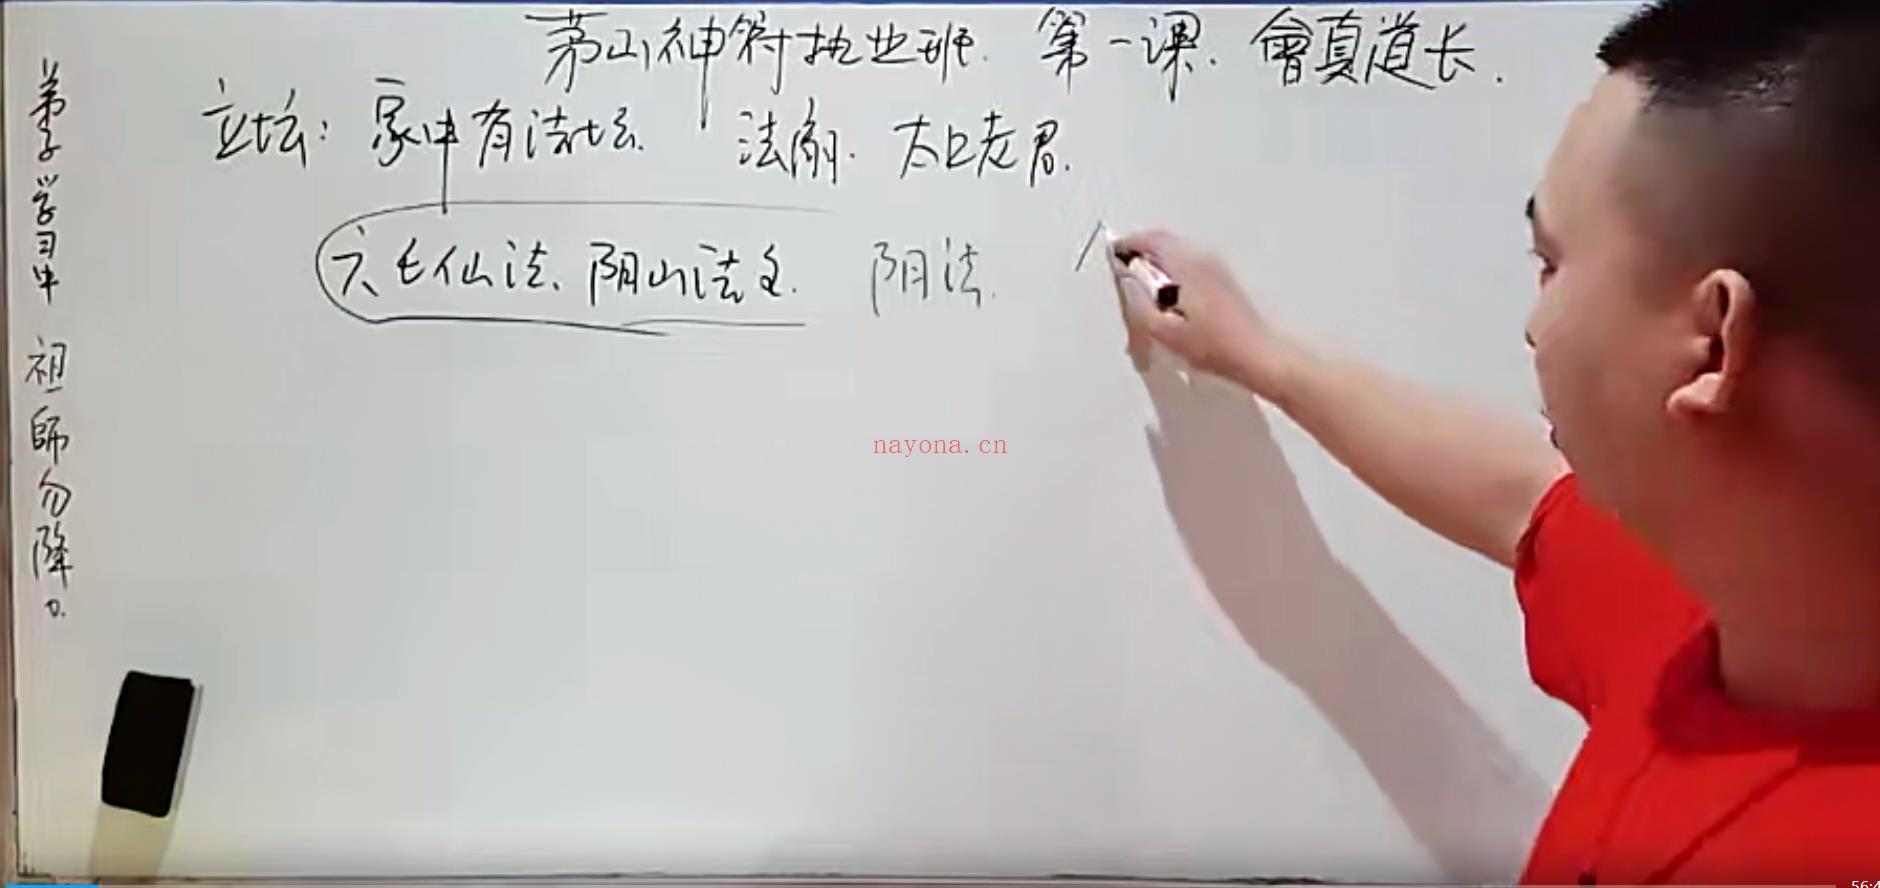 茅山神符执业班. 第一课. 會真道长.
立坛: 家中有法坛. 法脉. 太上老君.
六壬仙法、阴山法主. 阴法.
弟子学习中 祖師勿降
nayona.cn
56:4